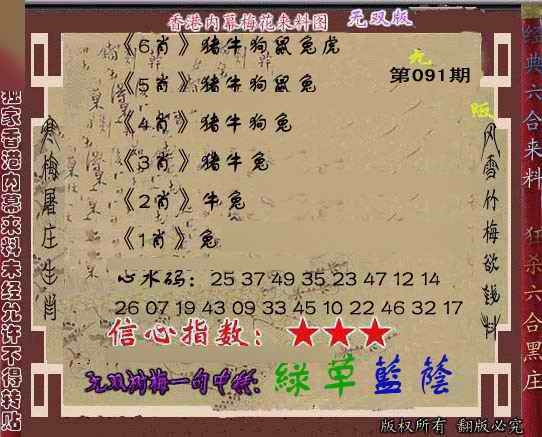 香港内幕梅花来料图 无双版
《6肖》猪牛狗鼠兔虎
《5肖》猪牛狗鼠兔
《4肖》猪牛狗兔
《3肖》猪牛兔
《2肖》牛兔
《1肖》兔
无
第091期
版
心水码：25 37 49 35 23 47 12 14
26 07 19 43 09 33 45 10 22 46 32 17
信心指数：★★★
绿草蓝荫
版权所有 翻版必究
独家香港内幕来料未经允许不得转贴
寒梅屠庄生肖
风雪竹梅欲钱料
经典六合来料
狂杀六合黑庄